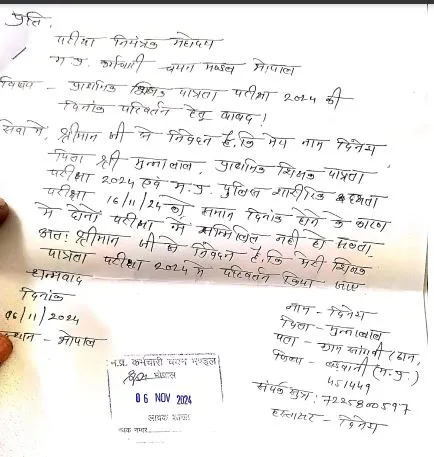 प्रति,
परीक्षा नियंत्रक महोदय
म.प्र. कर्मचारी चयन मण्डल भोपाल
विषय - प्राथमिक शिक्षक पात्रता परीक्षा 2024 की
दिनांक परिवर्तन हेतु बाबद!
सेवा में, श्रीमान जी से निवेदन है, कि मेरा नाम दिनेश
पिता श्री मुन्नालाल, प्राथमिक शिक्षक पात्रता
परीक्षा 2024 एवं म.प्र. पुलिस शारीरिक दक्षता
परीक्षा 16/11/24 को समान दिनांक होने के कारण
मे दोनो परीक्षा में सम्मिलित नही हो सकता.
अतः श्रीमान जी से निवेदन है, कि मेरी शिक्षक
पात्रता परीक्षा 2024 मे परिवर्तन किया जाए
धन्यवाद
दिनांक
06/11/2024
स्थान - भोपाल
नाम - दिनेश
पिता - मुन्नालाल
पता - ग्राम
जिला - बड़वानी (म.प्र.)
451449
संपर्क सूत्र : 7225800597
हस्ताक्षर - दिनेश
म.प्र. कर्मचारी चयन मण्डल
भोपाल
06 NOV 2024
आवक शाखा